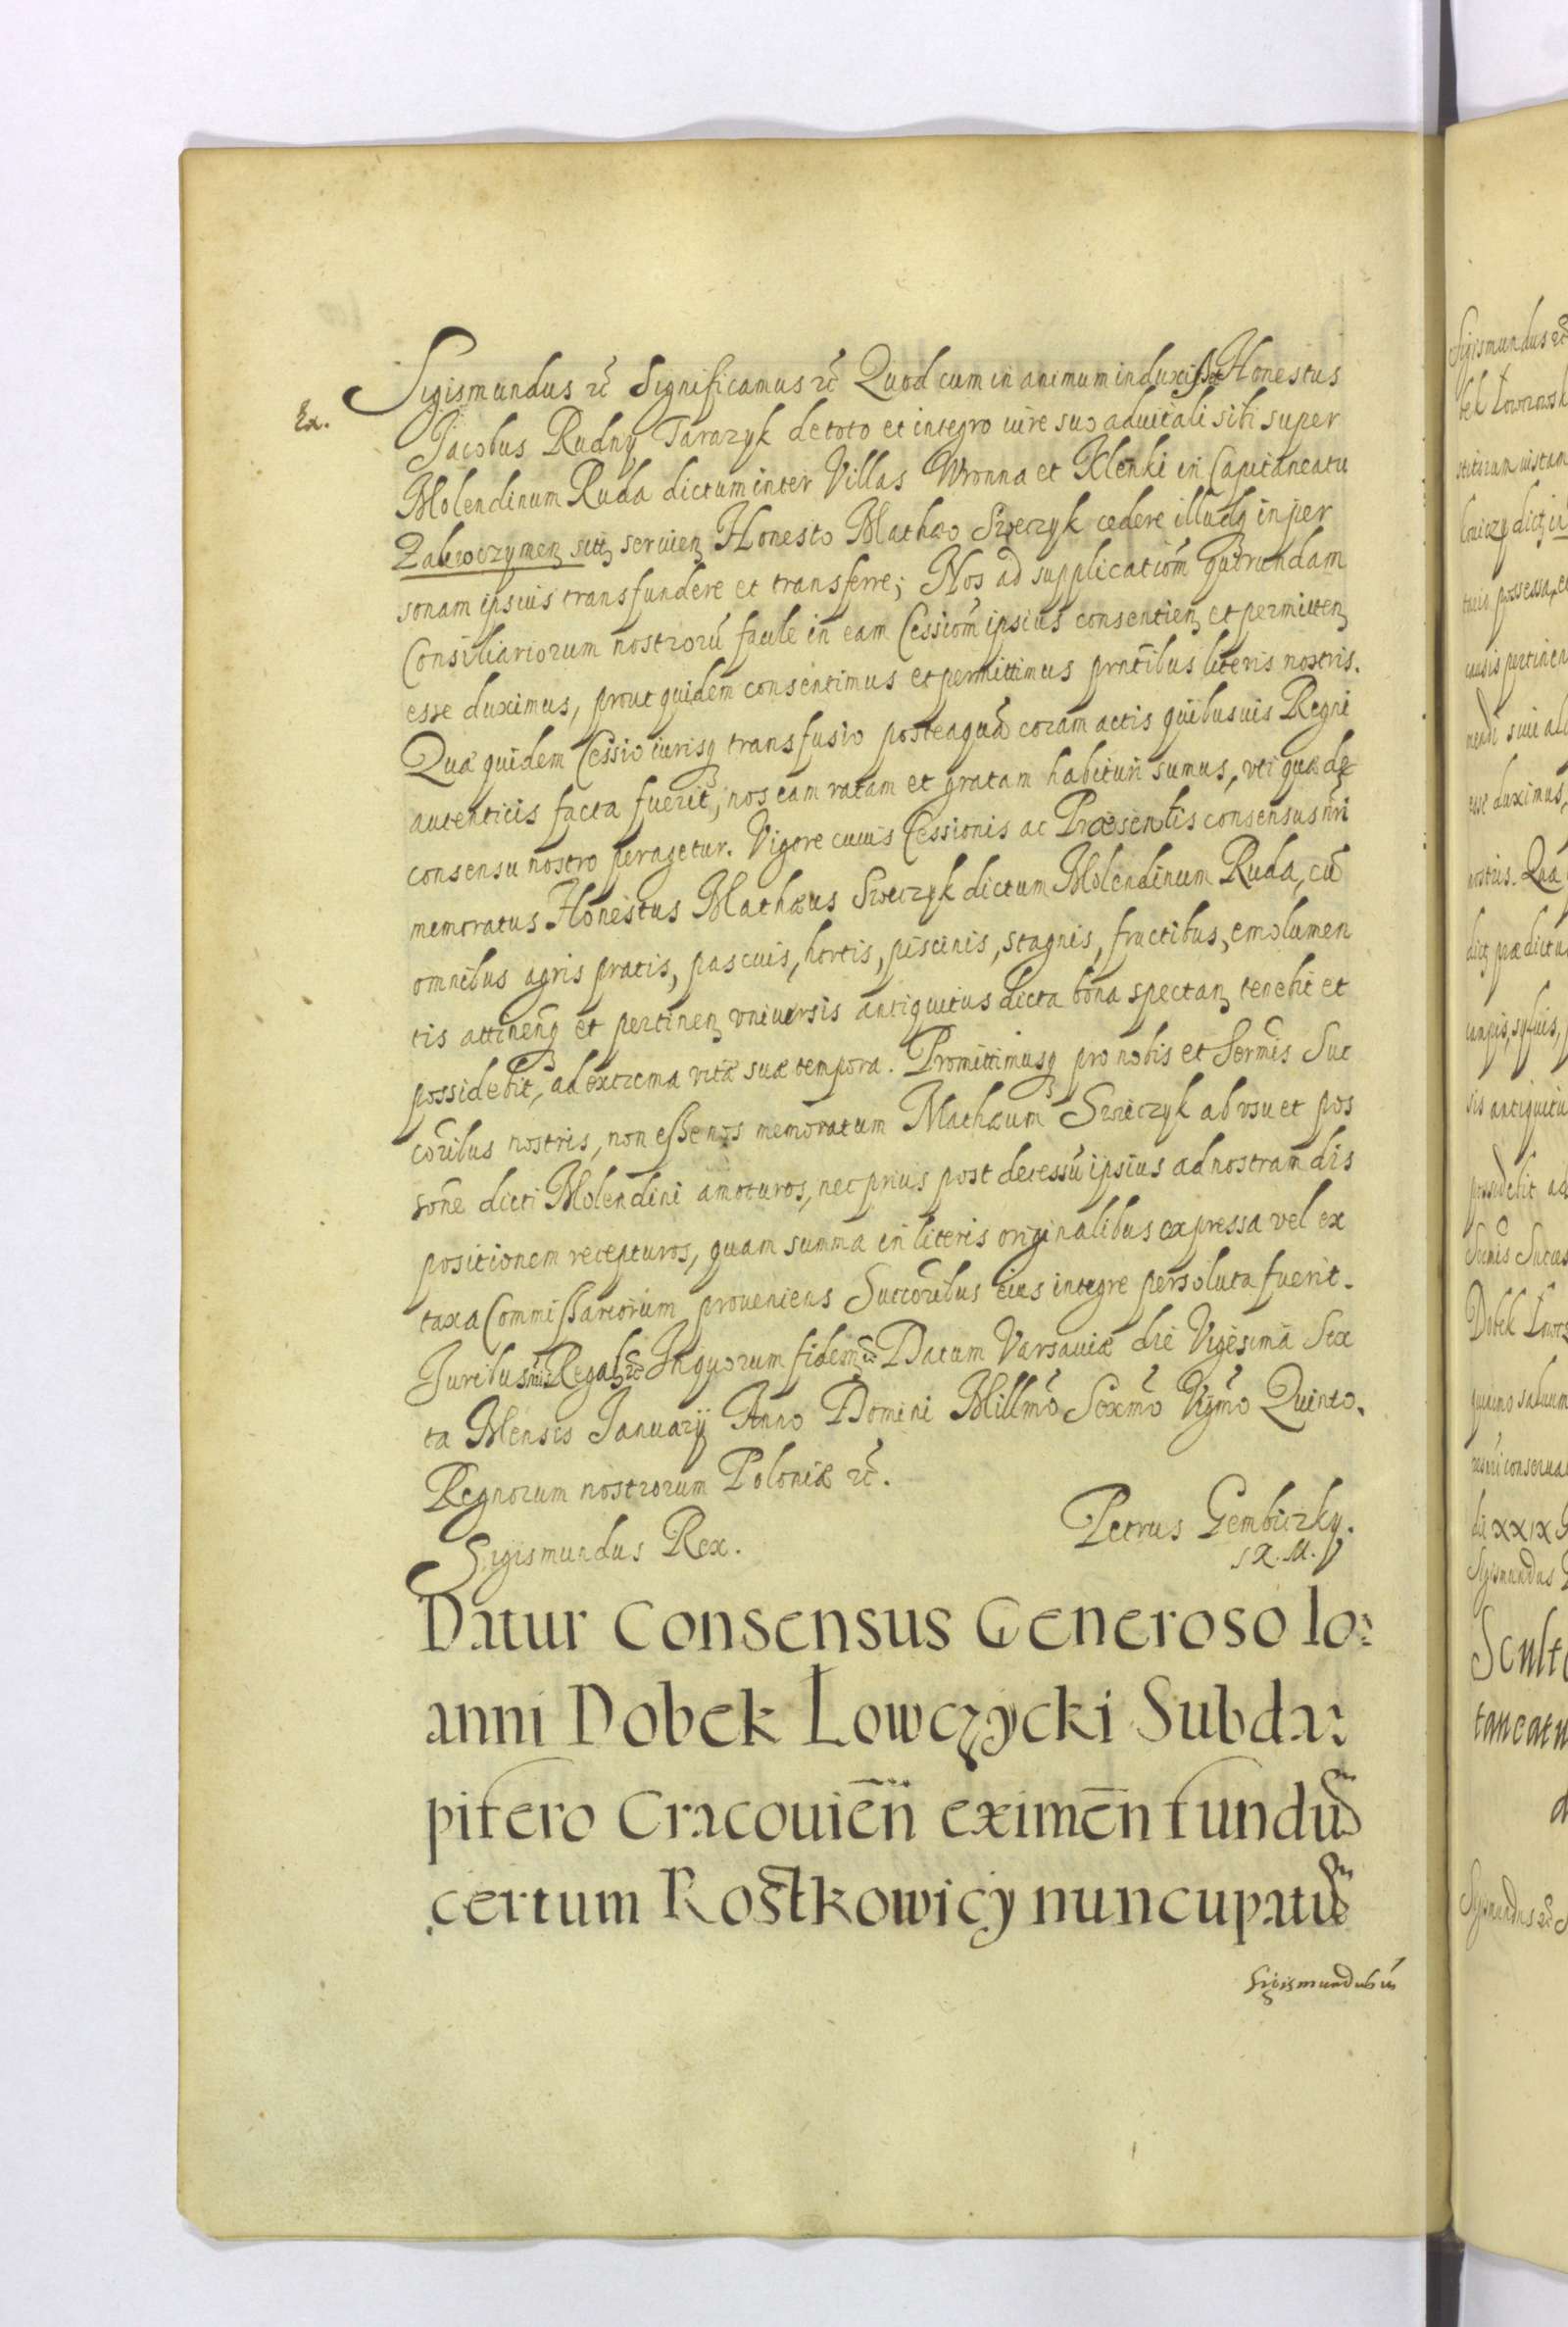 Sigismundus ec̃ Significamus ec̃ Quod cum in animum induxisset Honestus
Ex.
Jacobus Rudny Tarazyk de toto et integro iure suo aduitali sibi super
Molendinum Ruda dictum inter Villas Wronna et Klenki in Capitaneatu
Zakroczymeñ siti seruieñ Honesto Mathæo Szweczyk cedere illudq̃ in per
sonam ipsius transfundere et transferre; Nos ad supplicatiom̃ quorundam
Consiliariorum nostrorũ facile in eam Cessiom̃ ipsius consentieñ et permitteñ
esse duximus, prout quidem consentimus et permittimus prñtibus literis nostris.
Quæ quidem Cessio iurisq̃ transfusio posteaquã coram actis quibusuis Regni
autenticis facta fuerit, nos eam ratam et gratam habituri sumus, vti quæ de
consensu nostro peragetur. Vigore cuius Cessionis ac Præsentis consensus nr̃i
memoratus Honestus Mathæus Szweczyk dictum Molendinum Ruda, cũ
omnibus agris pratis, pascuis, hortis, piscinis, stagnis, fructibus, emolumen
tis attineñ et pertineñ vniuersis antiquitus dicta bona spectañ tenebit et
possidebit, ad extrema vitæ suæ tempora. Promittimusq̃ pro nobis et Serm̃is Suc
coribus nostris, non esse nos memoratum Mathæum Szweczyk ab vsu et pos
sone dicti Molendini amoturos, nec prius post decessũ ipsius ad nostram dis
positionem recepturos, quam summa in literis originalibus expressa vel ex
taxa Commissariorum proueniens Succoribus eius integre persoluta fuerit.
Juribus nr̃is Regal ec̃ In quorum fidem ec̃ Datum Varsauiæ die Vigesima Sex
ta Mensis Januarij Anno Domini Millm̃o Sexm̃o Vigm̃o Quinto.
Regnorum nostrorum Poloniæ ec̃.
Sigismundus Rex.
Petrus Gembiczky.
S R. M.
Datur Consensus Generoso Io:
anni Dobek Lowczycki Subda:
pifero Cracouieñ eximeñ fundũ
certum Rostkowicy nuncupatũ
Sigismundus
Sigismundus ec̃
stituram
dict
possessa, et
pertinen
esse duximus,
nostris. Quã
prædictu
campis, syluis,
sis antiquitu
possidebit ad
Serm̃is Succes
Dobek
conserua
die XXIX
Sigismundus
Sculte
taneatu
Sigismundus ec̃ S